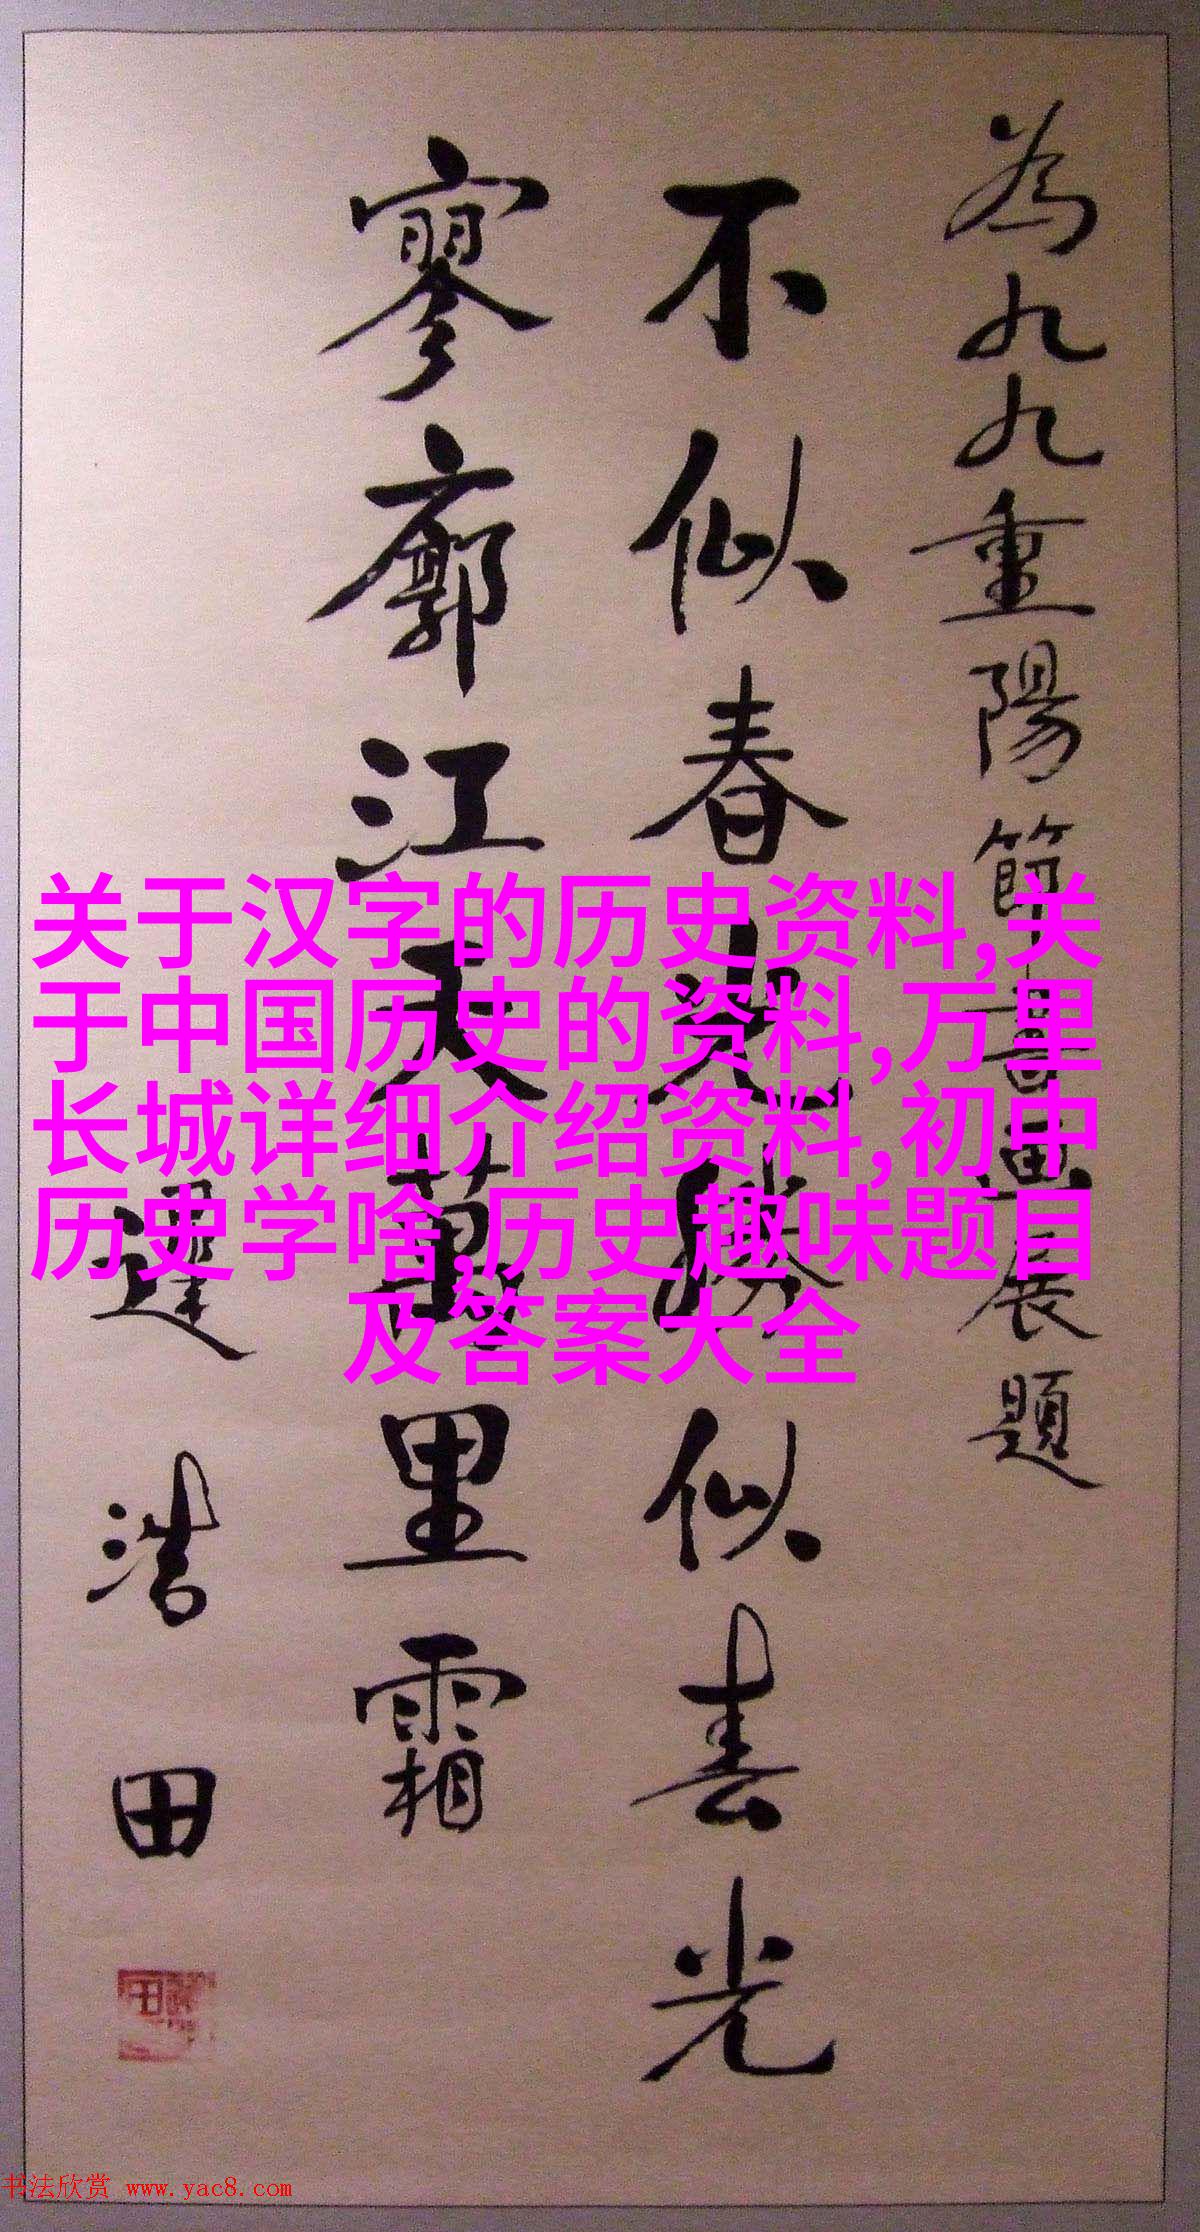 為九九重陽節書畫展題
不似春光勝似春光
寥廓江天萬里霜
遲浩田
关于汉字的历史资料,关
于中国历史的资料,万里
长城详细介绍资料,初中
历史学啥,历史趣味题目
及答案大全
书法欣赏 www.yac8.com